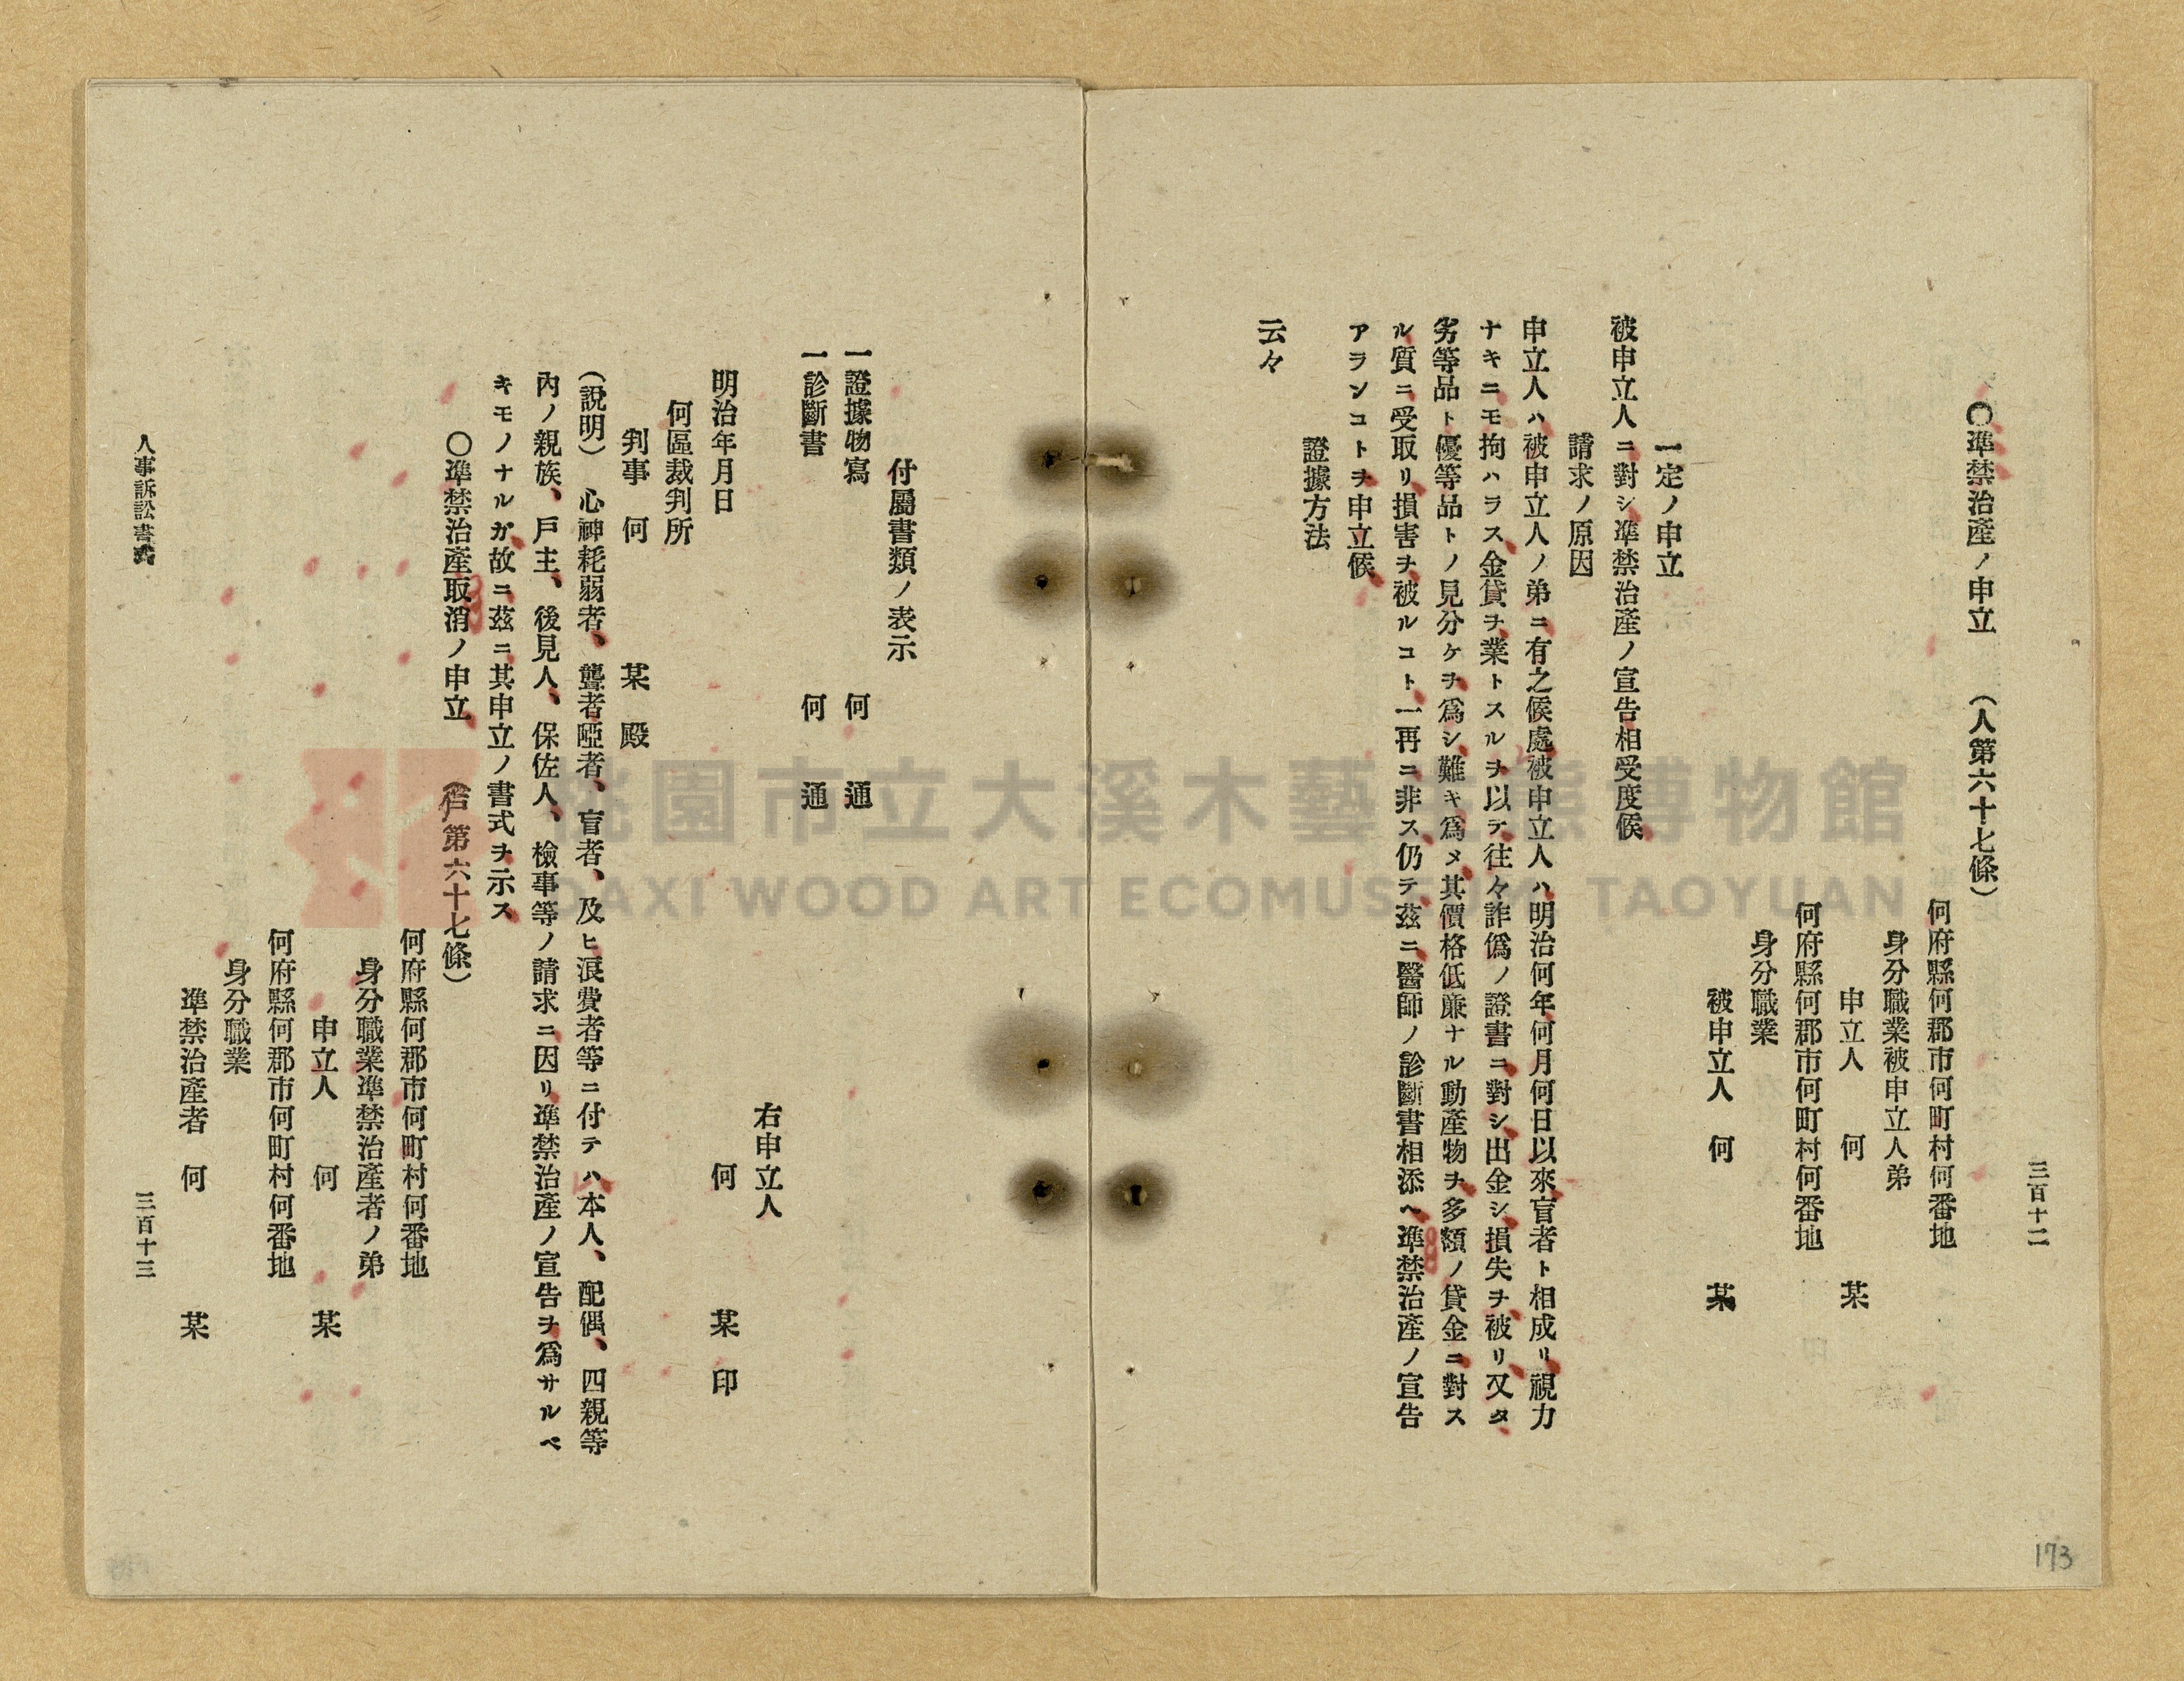 三百十二
〇準禁治產ノ申立　（人第六十七條）
何府縣何郡市何町村何番地
身分職業被申立人弟
申立人　何　某
何府縣何郡市何町村何番地
身分職業
被申立人　何　某
一定ノ申立
被申立人ニ對シ準禁治產ノ宣告相受度候
請求ノ原因
申立人ハ被申立人ノ弟ニ有之候處被申立人ハ明治何年何月何日以來盲者ト相成リ視力
ナキニモ拘ハラス金貸ヲ業トスルヲ以テ往々詐僞ノ證書ニ對シ出金シ損失ヲ被リ又タ
劣等品ト優等品トノ見分ケヲ爲シ難キ爲メ其價格低廉ナル動產物ヲ多額ノ貸金ニ對ス
ル質ニ受取リ損害ヲ被ルコト一再ニ非ス仍テ茲ニ醫師ノ診斷書相添ヘ準禁治產ノ宣告
アランコトヲ申立候
證據方法
云々
付屬書類ノ表示
一證據物寫　何　通
一診斷書　何　通
右申立人
明治年月日　何　某　印
何區裁判所
判事　何　某　殿
（說明）　心神耗弱者、聾者啞者、盲者、及ヒ浪費者等ニ付テハ本人、配偶、四親等
內ノ親族、戶主、後見人、保佐人、檢事等ノ請求ニ因リ準禁治產ノ宣告ヲ爲サルベ
キモノナルガ故ニ茲ニ其申立ノ書式ヲ示ス
〇準禁治產取消ノ申立　（第六十七條）
何府縣何郡市何町村何番地
身分職業準禁治產者ノ弟
申立人　何　某
何府縣何郡市何町村何番地
身分職業
準禁治產者　何　某
人事訴訟書式
三百十三
173
桃園市立大溪木藝生態博物館
DAXI WOOD ART ECOMUSEUM, TAOYUAN